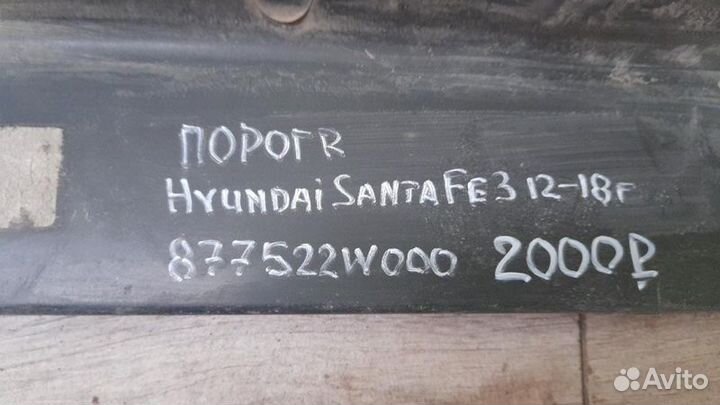 ПОРОГ R
HYUNDAI SANTA FE 3 12-18г
877522W000 2000₽
Avito